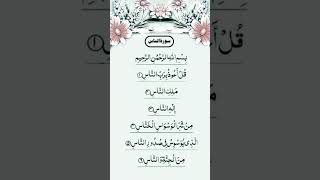 سورة الناس
بِسْمِ اللهِ الرَّحْمٰنِ الرَّحِيْمِ
قُلْ اَعُوْذُ بِرَبِّ النَّاسِ ۱
مَلِكِ النَّاسِ ۲
اِلٰهِ النَّاسِ ۳
مِنْ شَرِّ الْوَسْوَاسِ الْخَنَّاسِ ۴
الَّذِىْ يُوَسْوِسُ فِىْ صُدُوْرِ النَّاسِ ۵
مِنَ الْجِنَّةِ وَ النَّاسِ ۶